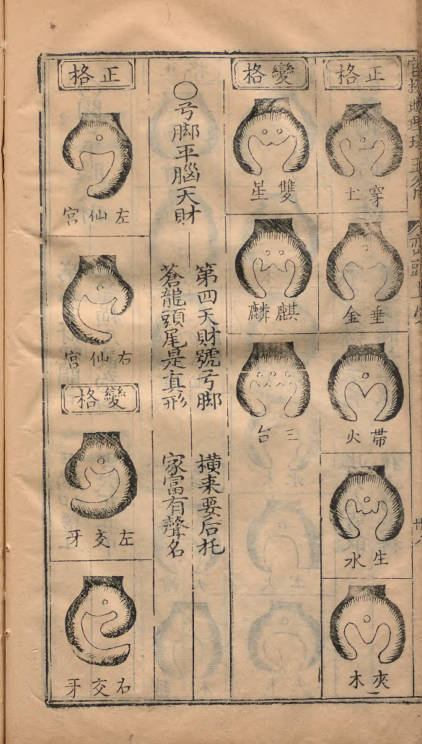 正格
穿土
垂金
帶火
生水
夾木
變格
雙星
麒麟
三台
○弓脚平腦天財
第四天財號弓脚
橫来要后托
蒼龍頭尾是真形
家富有聲名
正格
左仙宮
右仙宮
變格
左交牙
右交牙